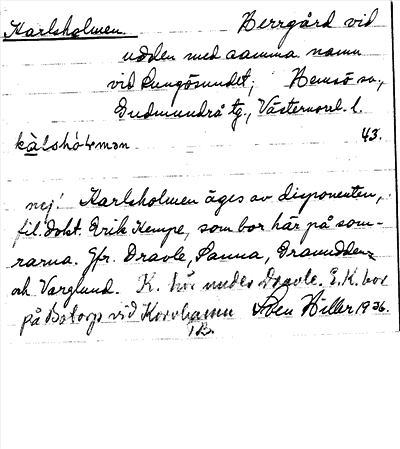 Karlsholmen. Herrgård vid
udden med samma namn
vid Lungösundet, Hemsö sn.,
Gudmundrå tg., Västernorrl. l.
43.
nej! Karlsholmen äges av disponenten,
fil. dokt. Erik Kempe, som bor här på som-
rarna. Jfr. Dravle, Sanna,
och Varglund. K. hör under Dravle. E. K. bor
på vid Sven Hiller 1936.